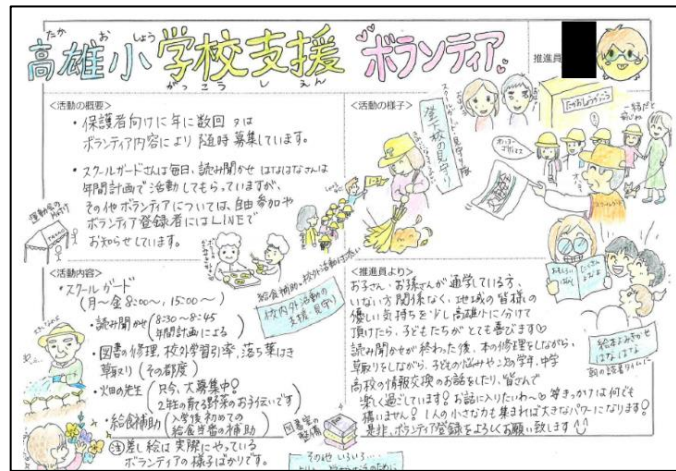 たか お しょう
高雄小 学校支援 ボランティア
がっこう し えん
推進員
<活動の概要>
・保護者向けに年に数回 又は
ボランティア内容により随時募集しています。
・スクールガードさんは毎日、読み聞かせ はなはなさんは
年間計画で活動してもらっていますが、
その他ボランティアについては、自由参加や
ボランティア登録者にはLINEで
お知らせしています。
運動会の片付け
<活動の様子>
登下校の見守り
給食補助・校外活動付き添い
校内外活動の
支援・見守り
<活動内容>
・スクールガード
(月〜金 8:00〜、15:00〜)
・読み聞かせ (8:30〜8:45
年間計画による)
・図書の修理、校外学習引率、落ち葉はき
草取り (その都度)
・火田の先生 (只今、大募集中!
2年生の散る野菜のお手伝いです)
・給食補助 (入学後初めての
給食当番の補助)
注 差し絵は実際にやっている
ボランティアの様子ばかりです。
図書室の
整備
<推進員より>
お子さん・お孫さんが通学している方、
いない方関係なく、地域の皆様の
優しい気持ちを少し高雄小に分けて
頂けたら、子どもたちがとても喜びます♡
読み聞かせが終わった後、本の修理をしながら、
草取りをしながら、子どもの悩みや 学年、中学
高校の情報交換のお話をしたり、皆さんで
楽しく過ごしています!お話に入りたいわ〜 等きっかけは何でも
構いません!1人の小さな力も集まれば大きなパワーになります!
是非、ボランティア登録をよろしくお願い致します
絵本よみきかせ
はなはな
朝の読書タイムに
その他いろいろ…